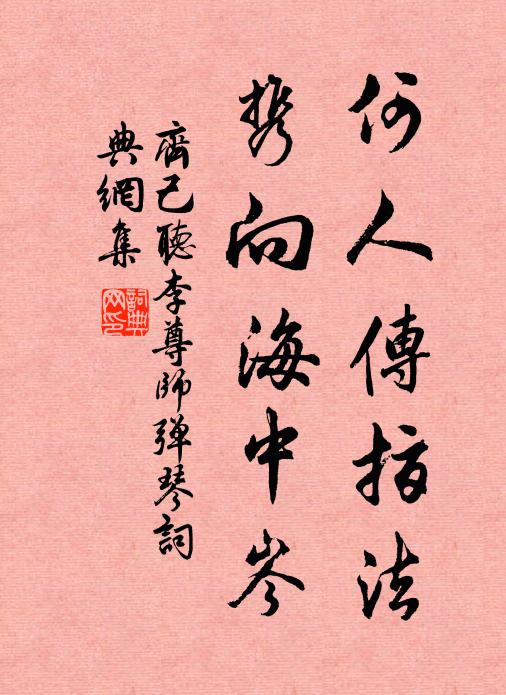 何人傳指法
携向海中岑
齊己聽李尊師彈琴詞
典網集
詞典網印